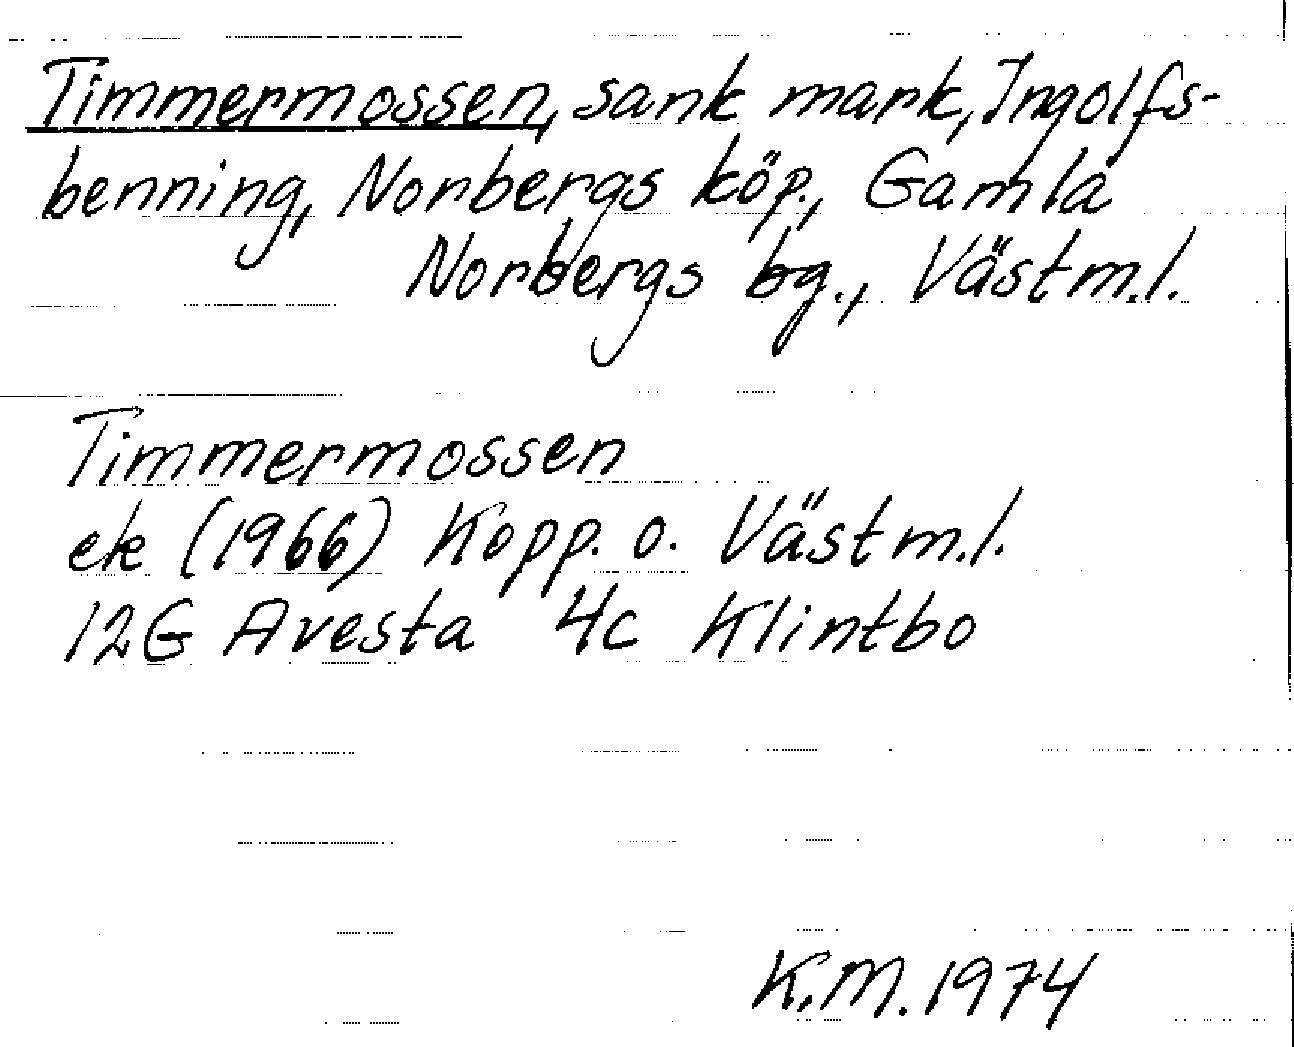 Timmermossen, sank mark, Ingolfs-
benning, Norbergs köp., Gamla
Norbergs bg., Västm.l.
Timmermossen
ek (1966) Kopp. o. Västm.l.
12G Avesta 4c Klintbo
K.M. 1974